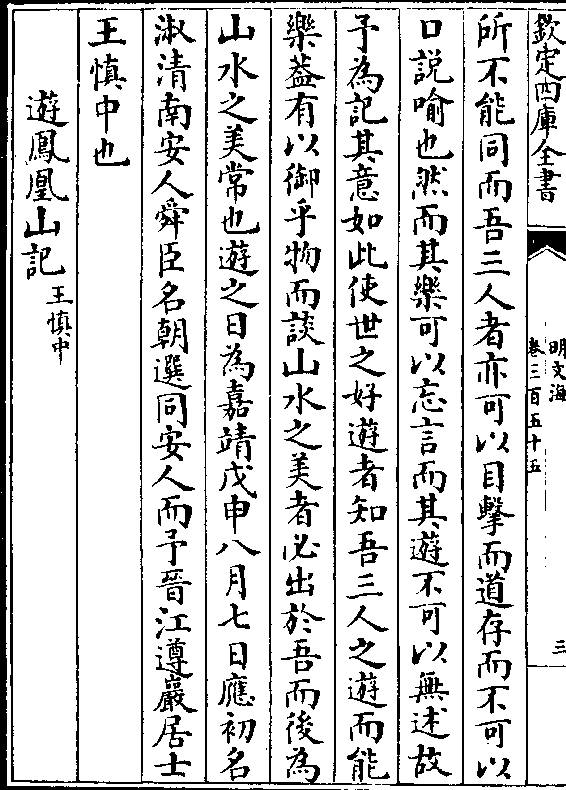 欽定四庫全書
明文海
卷三百五十五
三
所不能同而吾三人者亦可以目擊而道存而不可以
口説喻也然而其樂可以忘言而其遊不可以無述故
予為記其意如此使世之好遊者知吾三人之遊而能
樂葢有以御乎物而談山水之美者必出於吾而後為
山水之美常也遊之日為嘉靖戊申八月七日應初名
淑清南安人舜臣名朝選同安人而予晉江遵巖居士
王慎中也
遊鳳凰山記王慎中